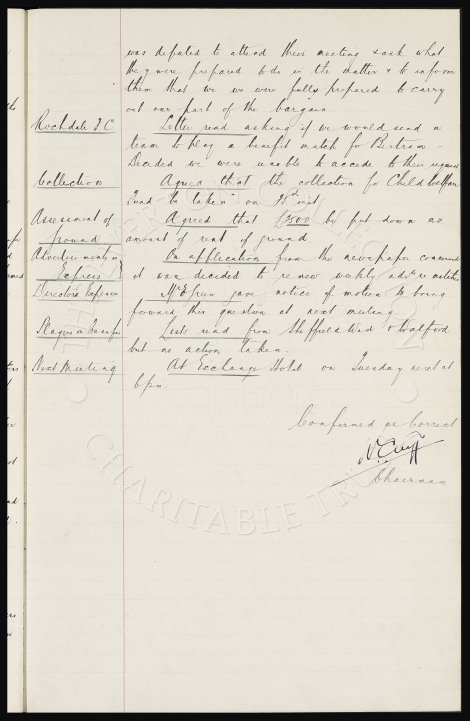 was deputed to attend their meeting & ask what
they were prepared to do in the matter & to inform
them that we we were fully prepared to carry
out our part of the bargain
Rochdale F C
Letter read asking if we would send a
team to play a benefit match for Bertram -
Decided we were unable to accede to their request
Collection
Agreed that the collection for Child Welfare
Fund be taken on 15th inst
Assessment of
ground
Agreed that £500 be put down as
amount of rent of ground.
Advertisements in
Express
On application from the newspaper concerned
it was decided to renew weekly advt re matches
Directors Expenses
Mr Green gave notice of motion to bring
forward this question at next meeting
Players on Transfer
Lists read from Sheffield Wed & Watford
but no action taken.
Next Meeting
At Exchange Hotel on Tuesday next at
6 pm
Confirmed as Correct
W. Cuff
Chairman
EVERTON COLLECTION
CHARITABLE TRUST